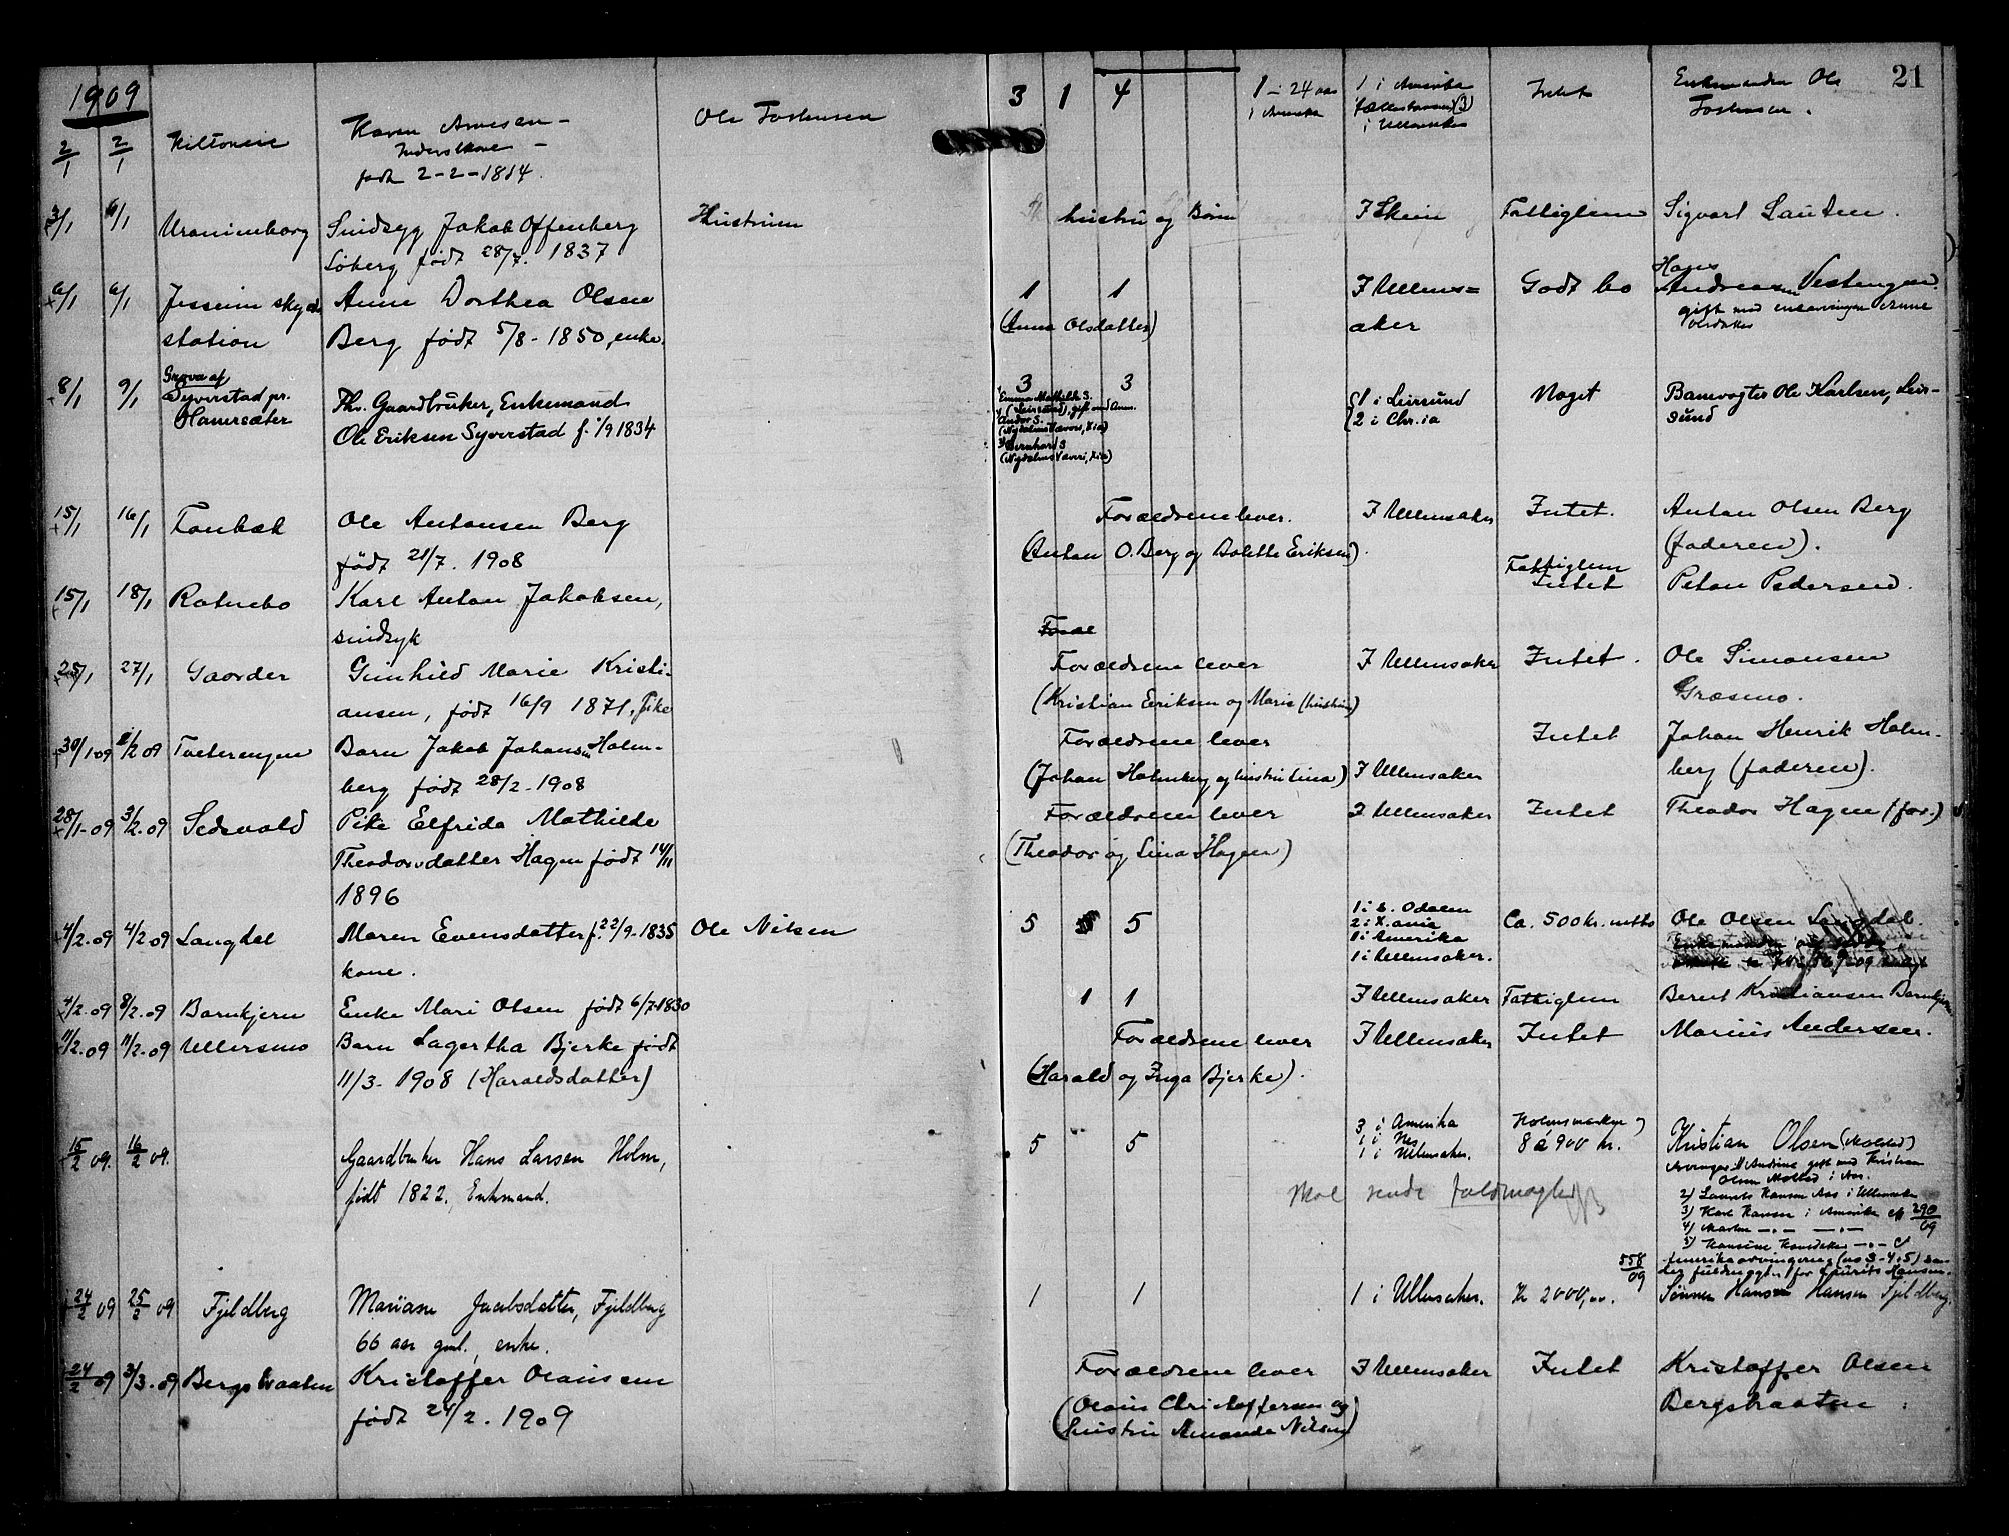 1909
21
2/1 2/1 Karen Arnesen – Ole Torstensen 3 1 4 1 – 24 aar 1 i Amerika Intet Enkemanden Ole
1 i Amerika
i Ullensaker Torstensen.
født 2-2-1814.
3/1 6/1 Uranienborg Sindsyg Jakob Offenberg Hustruen hustru og Børn I Skien Fattiglem Sigvart
Løberg født 28/7. 1837
6/1 6/1 Jessum skyds Anne Dorthea Olsen 1 1 I Ullens= Godt bo Hans
Andreasen Vestengen.
station Berg født 5/8 - 1850, enke. (Anna Olsdatter) aker gift med enearvingen Anne
Olsdatter
8/1 9/1 Græver af
Syverstad pr.
Hauersæter Fhv. Gaardbruker, Enkemand 3 3 1 i Leirsund Noget Banevogter Ole Karlsen, Leir-
Ole Eriksen Syverstad f. 1/9 1834 2 i Chr.ia sund
Emma Mathilde S.
(Leirsund), gift med Anm.
Andor S.
(Nydalens Væveri, Kia)
Bernhard S
(Nydalens Væveri, Kia)
15/1 16/1 Ole Antonsen Berg Forældrene lever. I Ullensaker Intet. Anton Olsen Berg
født 21/7. 1908 (Anton O. Berg og Bolette Eriksen). (faderen).
15/1 18/1 Ratnebo Karl Anton Jakobsen, Fattiglem
Intet Petan Pedersen.
sindsyk
Foræl
25/1 27/1 Gaarder Gunhild Marie Kristi- Forældrene lever I Ullensaker Intet. Ole Simonsen
ansen, født 16/9 1871, Pike (Kristian Eriksen og Marie (hustru) Græsmo.
30/1 09 2/2 09 Tveterengen Barn Jakob Johansen Holm- Forældrene lever Intet Johan Henrik Holm-
berg født 28/2 - 1908 (Johan Holmberg og hustru Lina) I Ullensaker berg (faderen).
28/1-09 3/2.09 Sedsvald Pike Elfrida Mathilde Forældrene lever I Ullensaker Intet Theodor Hagen (far.)
Theodorsdatter Hagen født 14/11 (Theodor og Lina Hagen)
1896
4/2.09 4/2 09 Langdal Maren Evensdatter f. 22/9-1835 Ole Nilsen 5 5 Ca. 500 kr. netto Ole Olsen Langdal.
kone.
1 i S. Odalen
2 i X.ania
1 i Amerika
1 i Ullensaker.
4/2.09 8/2.09 Barnkjern Enke Mari Olsen født 6/7-1830 1 1 I Ullensaker Fattiglem Bernt Kristiansen Barnkjern
11/2.09 11/2.09 Ullersmo Barn Lagertha Bjerke født Forældrene lever I Ullensaker Intet Marius Andersen.
11/3 - 1908 (Haraldsdatter) (Harald og Inga Bjerke).
15/2 09. 16/2 09. Gaardbruker Hans Larsen Holm, 5 5 3 i Amerika
1 i Nes
1 i Ullensaker. 8 à 900 kr. Kristian Olsen (Molstad)
født 1822, Enkemand.
Arvinger: 1) Andrine gift med Kristian
Olsen Molstad i Aas.
2) Laurits Hansen Aas i Ullensaker
3) Karl Hansen i Amerika cfr 290/09
4) Martin –"– –"–
5) Hansine Hansdatter –"–
Skal sende fuldmagter
558/09 Amerikaarvingerne (no 3-4-5) sen-
der fuldmagter for Laurits Hansen.
24/2 09 25/2 09 Fjeldberg Mariane Jacobsdatter, Fjeldberg 1 1 1 i Ullensaker. Kr 2000,00. Sønnen Hans Hansen Fjeldberg.
66 aar gml., enke.
24/2 09 3/3.09 Bergsbraaten Kristoffer Olausen Forældrene lever I Ullensaker Intet Kristoffer Olsen
født 24/2. 1909 (Olaus Christoffersen og
hustru Amanda Nilsen) Bergsbraaten.